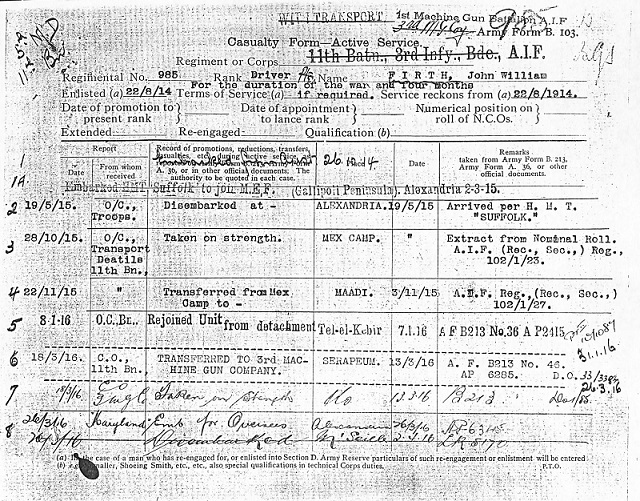 WITH TRANSPORT. 1st Machine Gun Battalion A.I.F
3rd M.G. Coy. Army Form B. 103.
Casualty Form—Active Service.
Regiment or Corps 11th Batn., 3rd Infy., Bde., A.I.F.
Regimental No. 985 Rank Driver Name FIRTH, John William
For the duration of the war and four months
Enlisted (a) 22/8/14 Terms of Service (a) if required. Service reckons from (a) 22/8/1914.
Date of promotion to present rank Date of appointment to lance rank Numerical position on roll of N.C.Os.
Extended Re-engaged Qualification (b)
Report
Date From whom received
Record of promotions, reductions, transfers, casualties, etc., during active service, as
A. 36, or in other official documents. The authority to be quoted in each case.
Place
Date
Remarks taken from Army Form B. 213, Army Form A. 36, or other official documents.
1
1A Embarked HMT Suffolk to join M.E.F. (Gallipoli Peninsula). Alexandria 2-3-15.
2 19/5/15. O/C, Troops. Disembarked at - ALEXANDRIA. 19/5/15 Arrived per H. M. T. "SUFFOLK."
3 28/10/15. O/C, Transport Deatils 11th Bn., Taken on strength. MEX CAMP. " Extract from Nominal Roll. A.I.F. (Rec., Sec.,) Reg., 102/1/23.
4 22/11/15 " Transferred from Mex Camp to - MAADI. 3/11/15 A.I.F. Reg., (Rec., Sec.,) 102/1/27.
5 8-1-16 O.C., Bn.. Rejoined Unit from detachment Tel-el-Kebir 7.1.16 A F B213 No. 36 A P2415
31.1.16
6 18/3/16. C.O., 11th Bn., TRANSFERRED TO 3rd MACHINE GUN COMPANY. SERAPEUM. 13/3/16 A. F. B213 No. 46. AP 6285. D.O.
26.3.16
7 18/3/16. CO Taken on Strength do 13.3.16 B213
8 26/3/16 Maryland Emb for Overseas 26/3/16
Disembarked
(a) In the case of a man who has re-engaged for, or enlisted into Section D. Army Reserve particulars of such re-engagement or enlistment will be entered.
(b) e.g. Signaller, Shoeing Smith, etc., etc., also special qualifications in technical Corps duties. P.T.O.